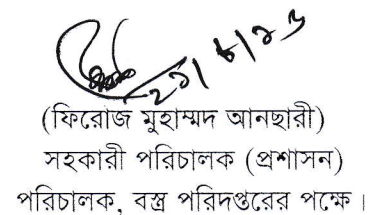 ২১/৮/১৬
(ফিরোজ মুহাম্মদ আনছারী)
সহকারী পরিচালক (প্রশাসন)
পরিচালক, বস্ত্র পরিদপ্তরের পক্ষে।